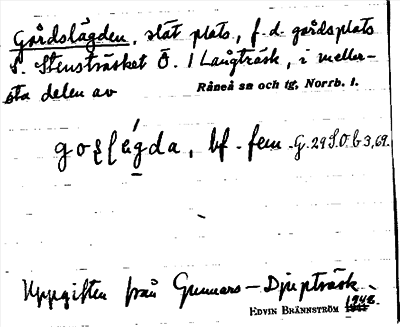 Gårdslägden, slåt plats, f.d. gårdsplats
S. Stensträsket Ö. i Långträsk, i meller-
sta delen av Råneå sn och tg, Norrb. l.
bf. fem. G. 29 S.O. b 3,69.
Uppgiften från Gunnars-Djupträsk
EDVIN BRÄNNSTRÖM 1948.